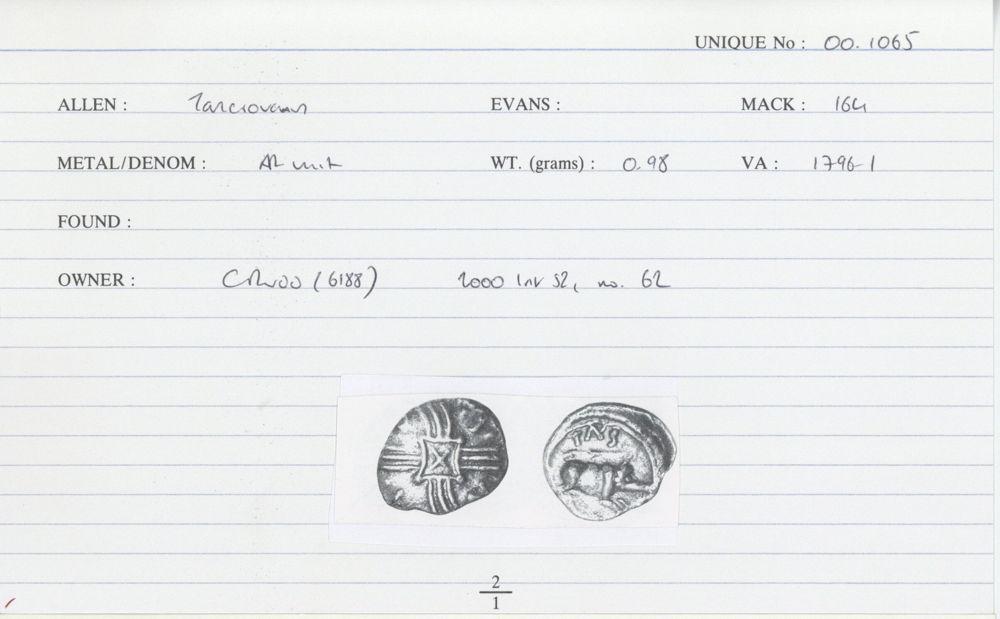 UNIQUE No : 00.1065
ALLEN : Tasciovanus EVANS : MACK : 164
METAL/DENOM : AR unit WT. (grams) : 0.98 VA : 1796-1
FOUND :
OWNER : CR (6188) 2000 Inv 52, no. 62
TAS
2
1